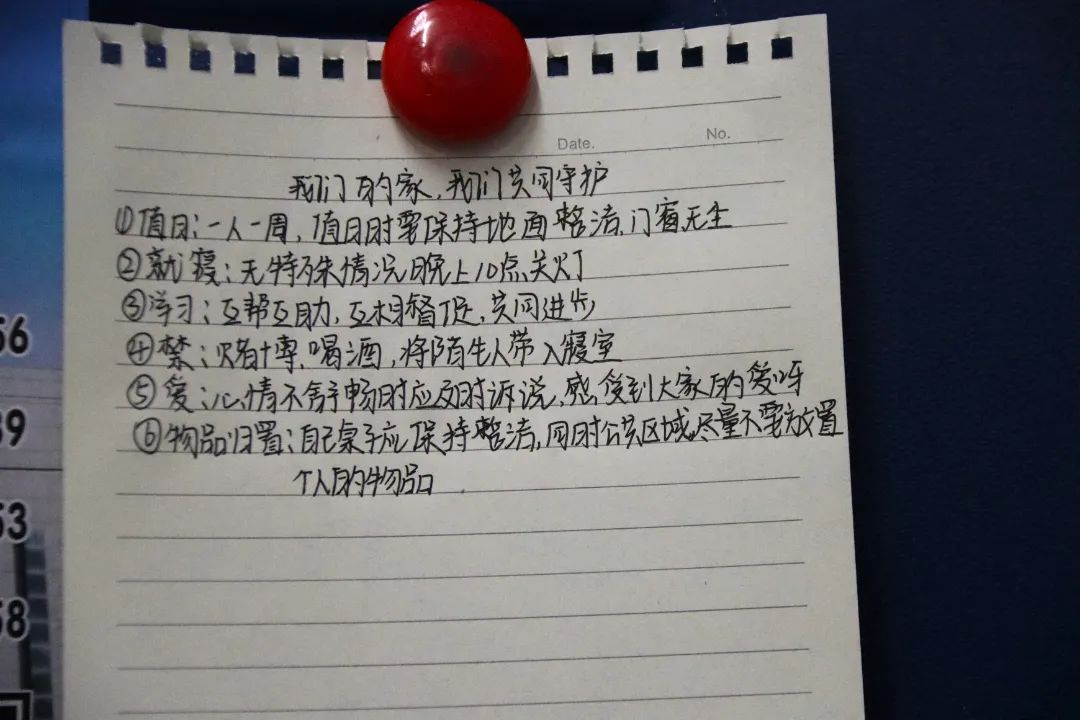 Date.
No.
我们的家,我们共同守护
①值日:一人一周,值日时要保持地面整洁,门窗无尘
②就寝:无特殊情况晚上10点关灯
③学习:互帮互助,互相督促,共同进步
④禁:赌博、喝酒,将陌生人带入寝室
⑤爱:心情不舒畅时应及时诉说,感受到大家的爱呀
⑥物品归置:自己桌子应保持整洁,同时公共区域尽量不要放置
个人的物品.
56
39
53
58